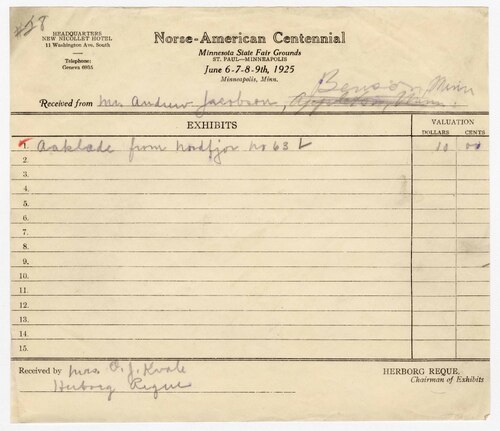 #28
HEADQUARTERS
NEW NICOLLET HOTEL
11 Washington Ave. South
Telephone:
Geneva 6955
Norse-American Centennial
Minnesota State Fair Grounds
ST. PAUL—MINNEAPOLIS
June 6-7-8-9th, 1925
Minneapolis, Minn.
Benson, Minn
Received from Mrs Andrew Jacobson, Appleton, Minn.
EXHIBITS
VALUATION
DOLLARS CENTS
1. Aaklade from Nordfjor No 63 L 10 00
2.
3.
4.
5.
6.
7.
8.
9.
10.
11.
12.
13.
14.
15.
Received by Mrs. O. J. Kvale
Herborg Reque
HERBORG REQUE,
Chairman of Exhibits